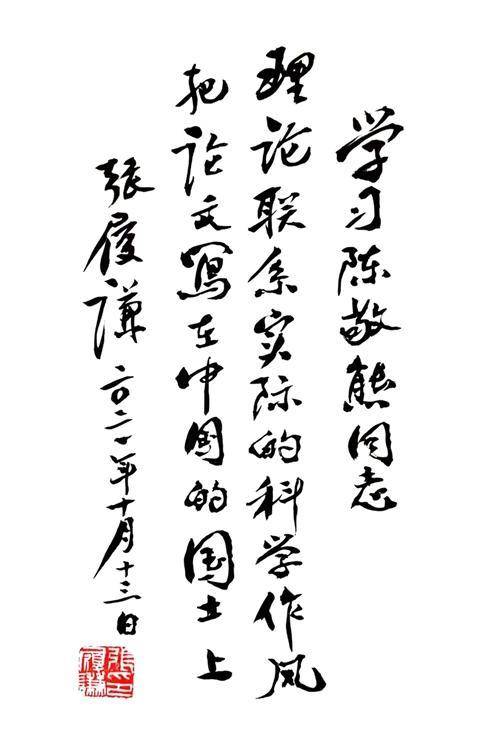 学习陈敬熊同志
理论联系实际的科学作风
把论文写在中国的国土上
张履谦 二〇二一年十月十三日
张履谦印